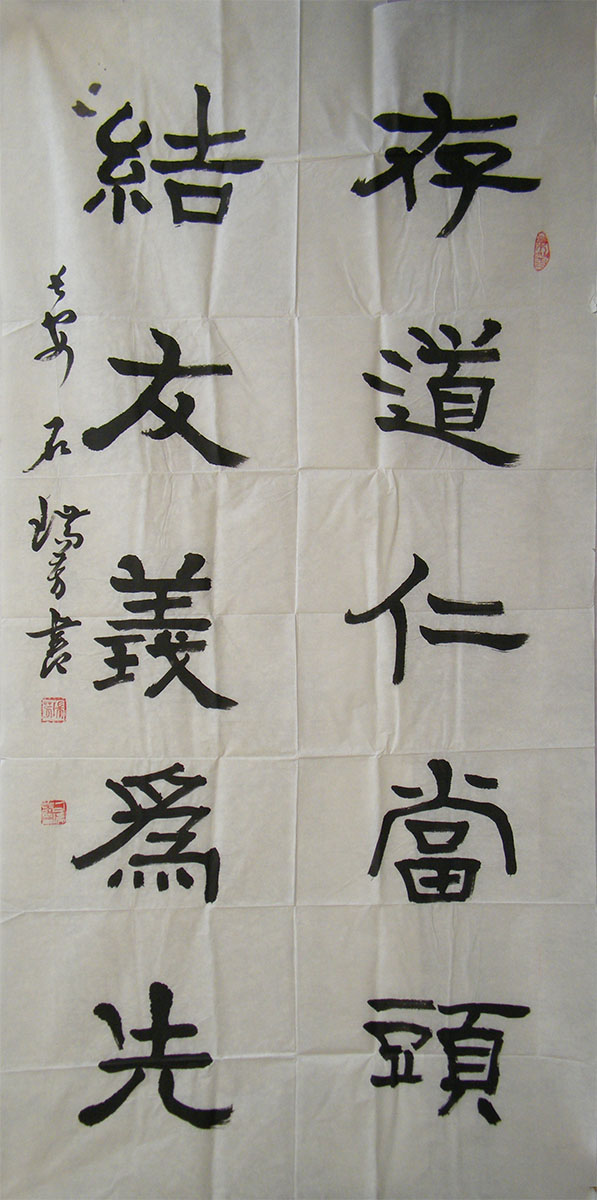 存道仁當頭
結友義為先
长安石瑞芳书